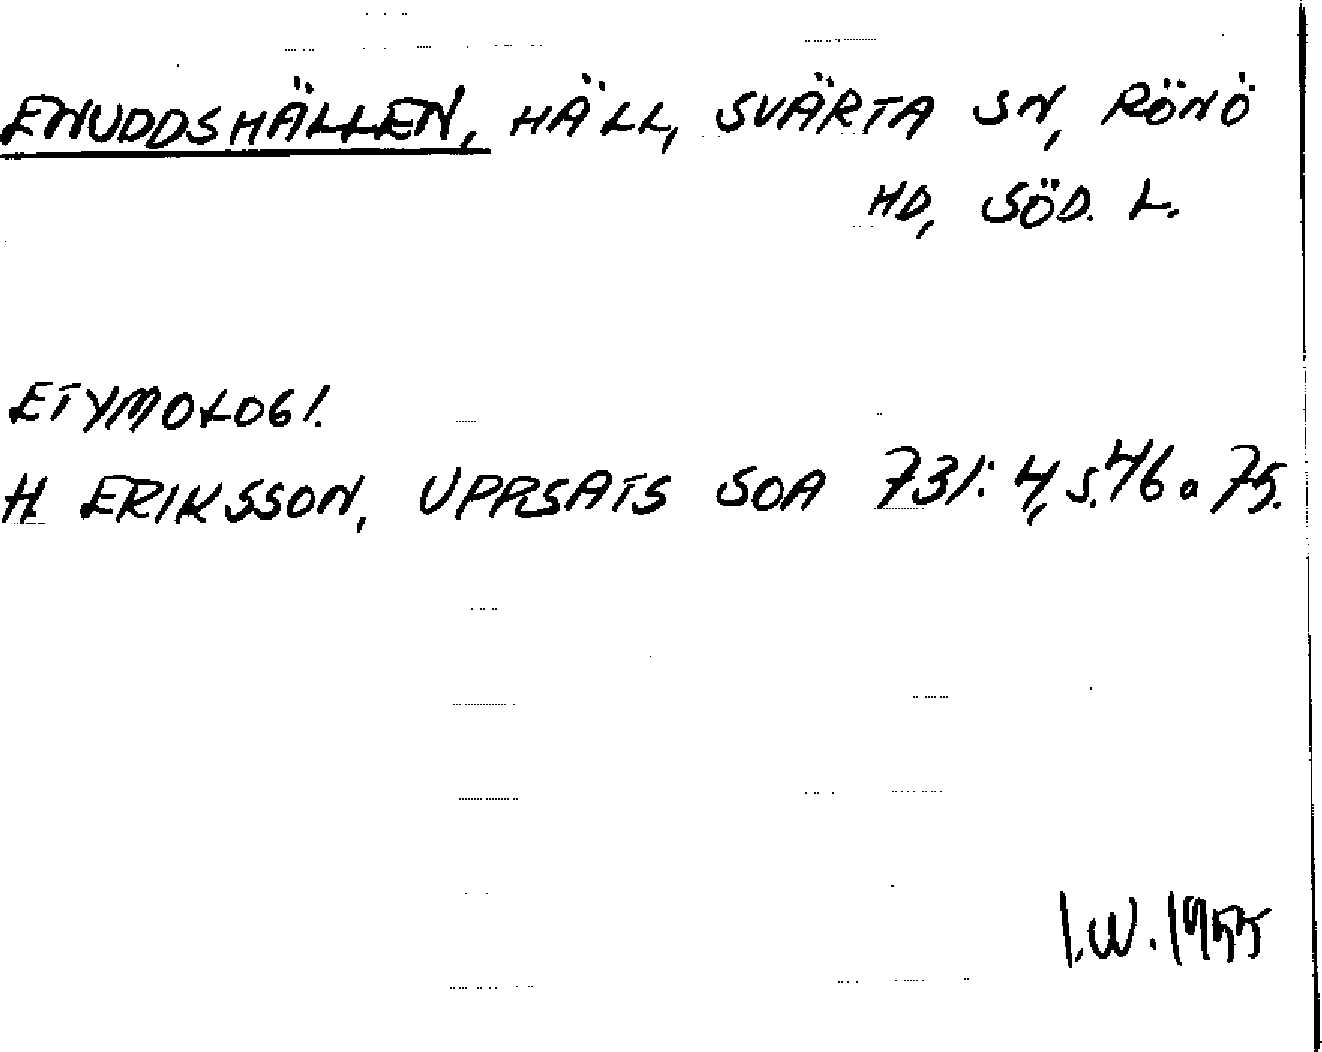 ENUDDSHÄLLEN, HÄLL, SVÄRTA SN, RÖNÖ
HD, SÖD. L.
ETYMOLOGI.
H. ERIKSSON, UPPSATS SOA 731: 4, S. 46 o 75.
I.W. 1955